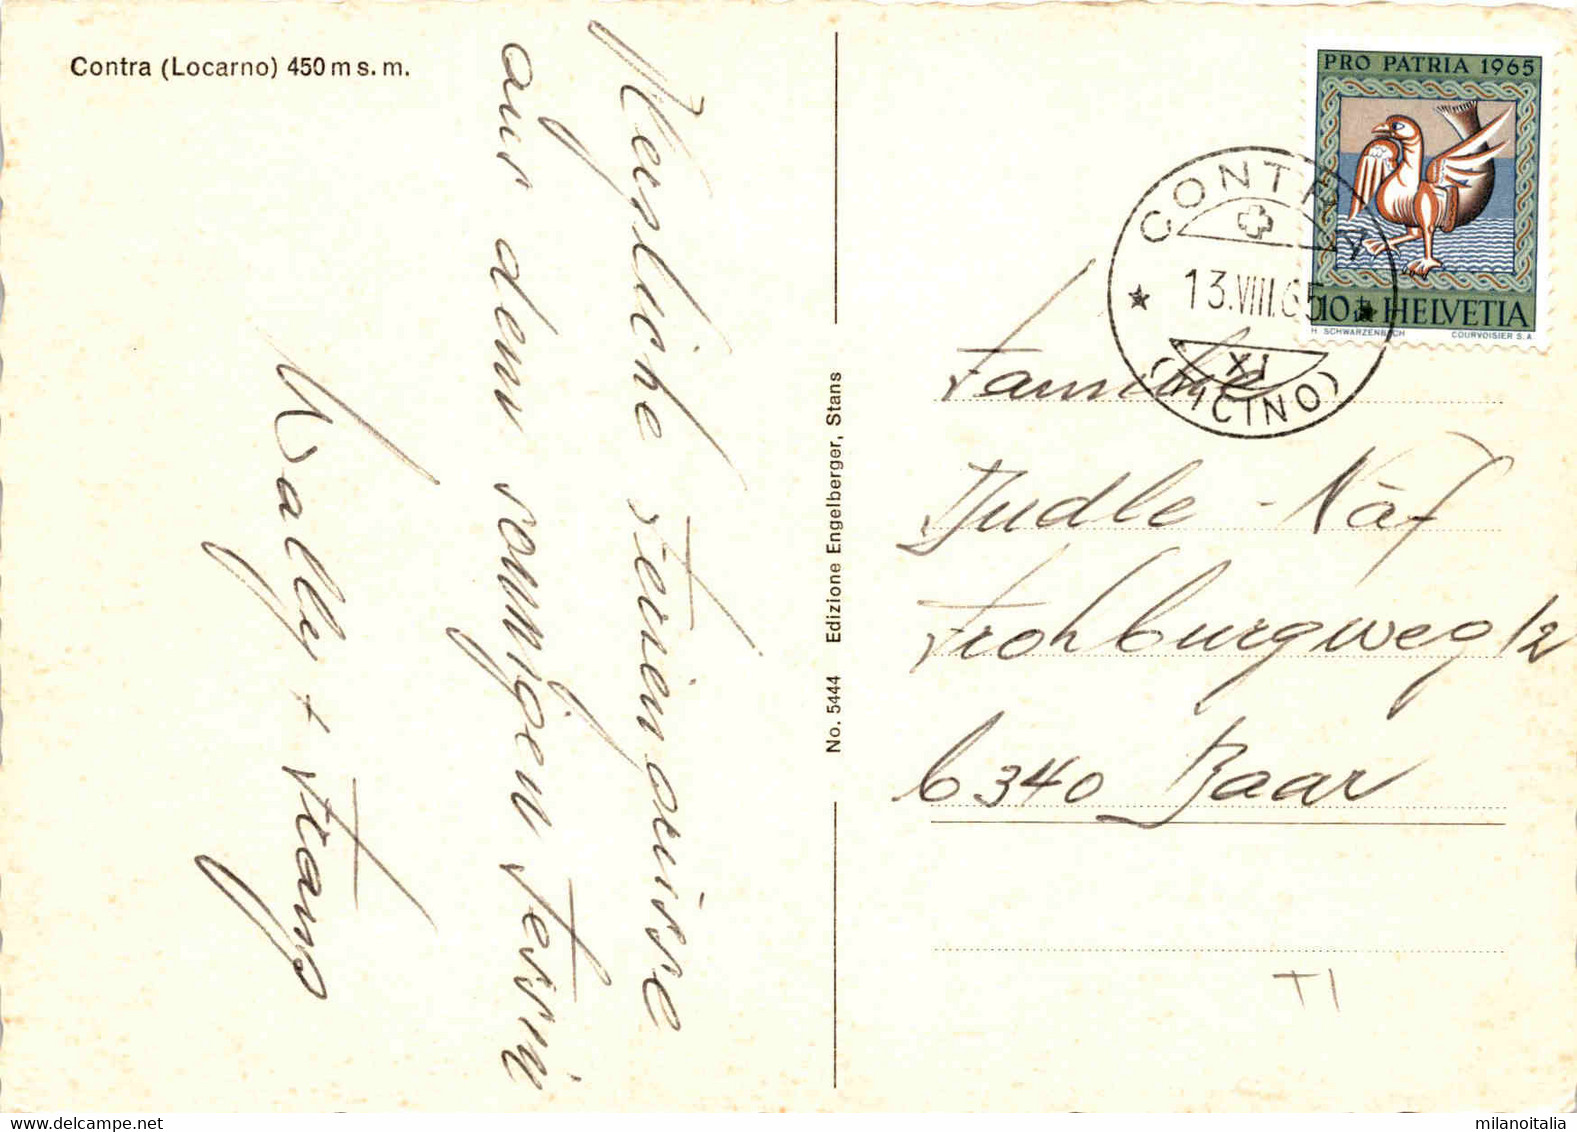 Contra (Locarno) 450 m s. m.
Herzliche Feriengrüsse
aus dem sonnigen Tessin
Wally + Franz
No. 5444 Edizione Engelberger, Stans
PRO PATRIA 1965
10 HELVETIA
H. SCHWARZENBACH COURVOISIER S. A.
CONTRA
13.VIII.65
XI
(TICINO)
Familie
Judle - Näf
Frohburgweg 12
6340 Baar
TI
milanoitalia
www.delcampe.net